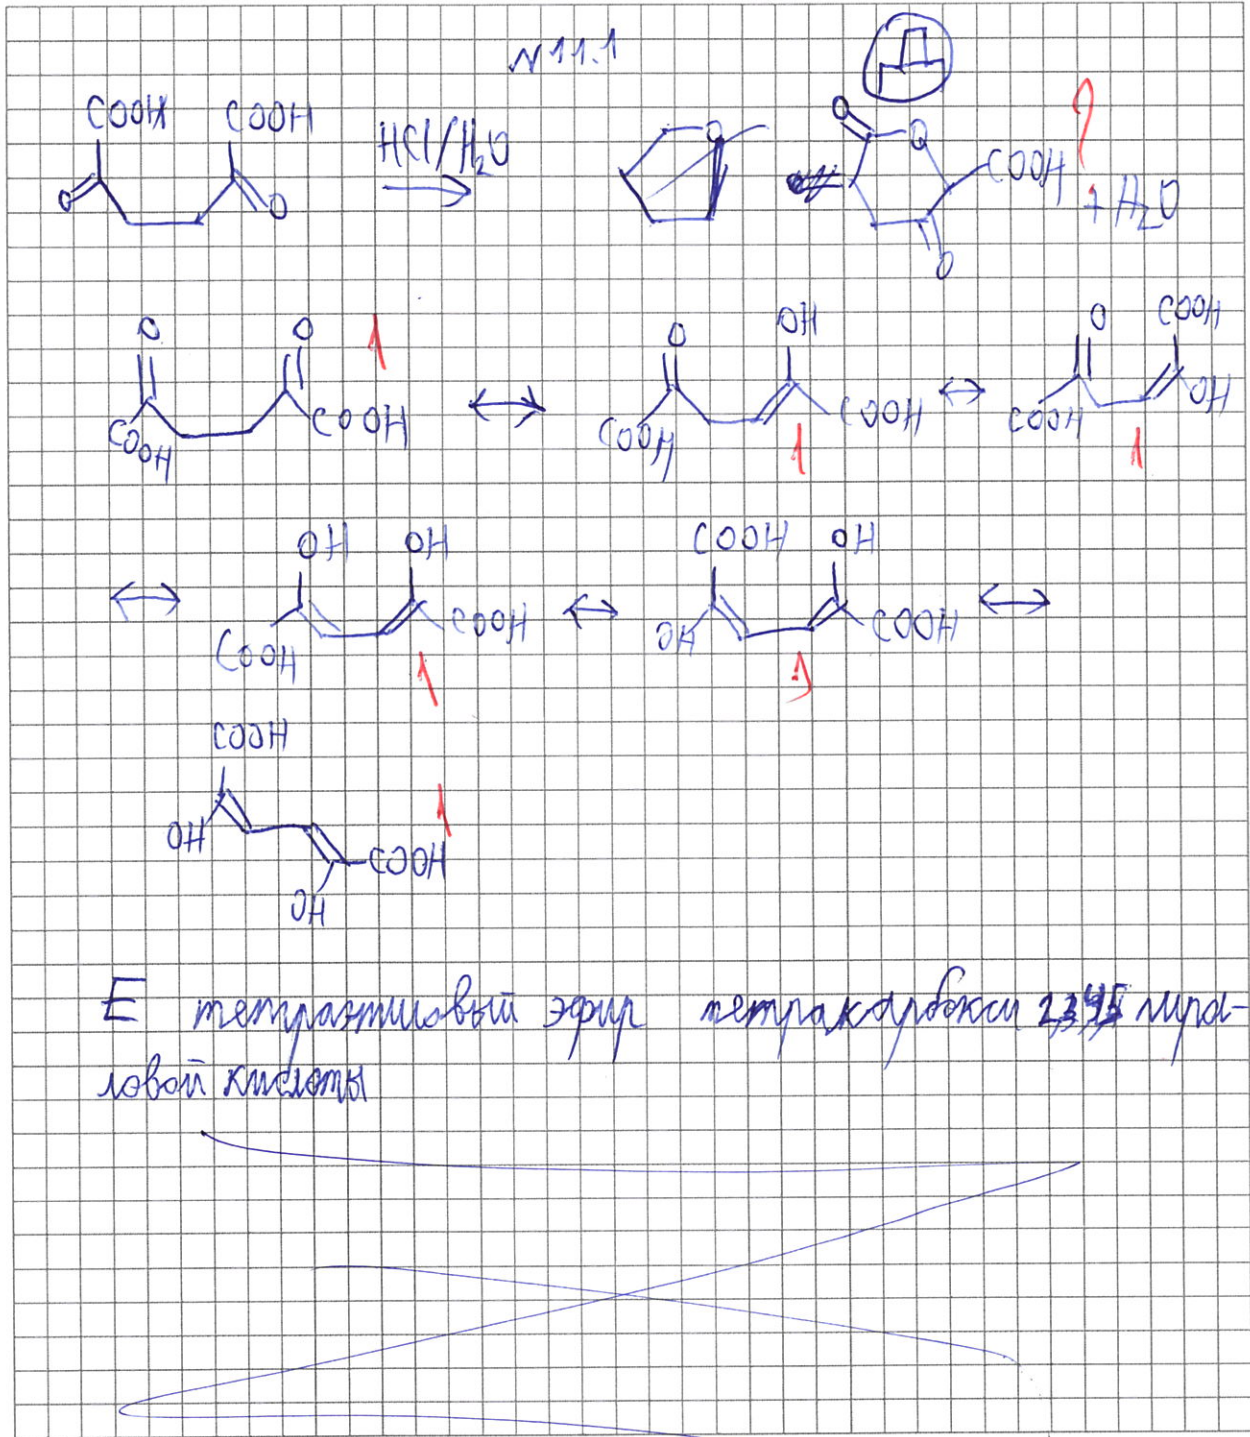 N 11.1
COOH COOH HCl/H₂O O O COOH ?
O O O + H₂O
O O 1 O OH O COOH
COOH COOH COOH COOH COOH OH
1 1
OH OH COOH OH
COOH COOH OH COOH
1 1
COOH
OH COOH 1
OH
E тетраэтиловый эфир тетракарбокси 2345 пира-
ловой кислоты